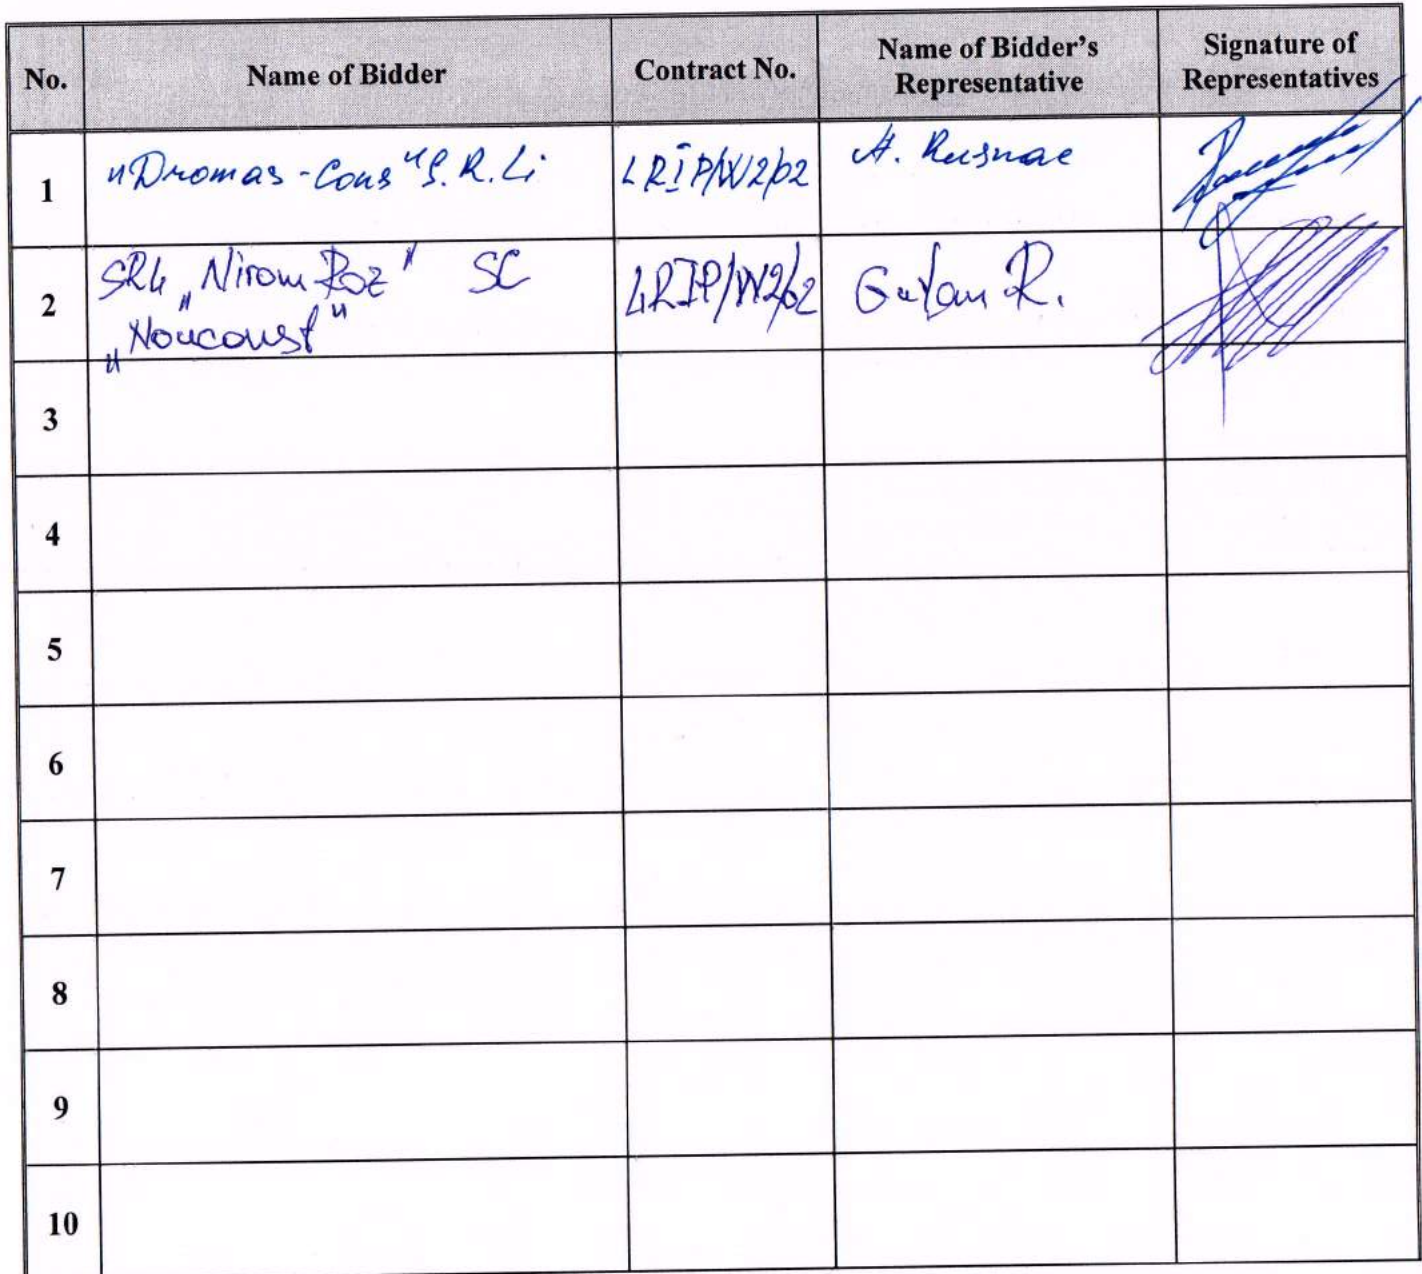 No. Name of Bidder Contract No. Name of Bidder's Representative Signature of Representatives
1 "Dromas-Cons" S.R.L. LRIP/W2/02 A. Rusnac
2 SRL „Nirom Roz" SC LRIP/W2/02 R.
„Nouconst"
3
4
5
6
7
8
9
10